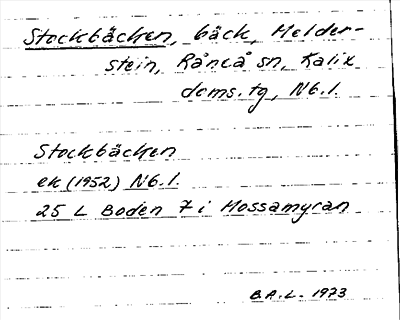 Stockbäcken, bäck, Melder-
stein, Råneå sn, Kalix
doms. tg, Nb. l.
Stockbäcken
ek (1952) Nb. l.
25 L Boden 7 i Mossamyran
B.A.L. 1973